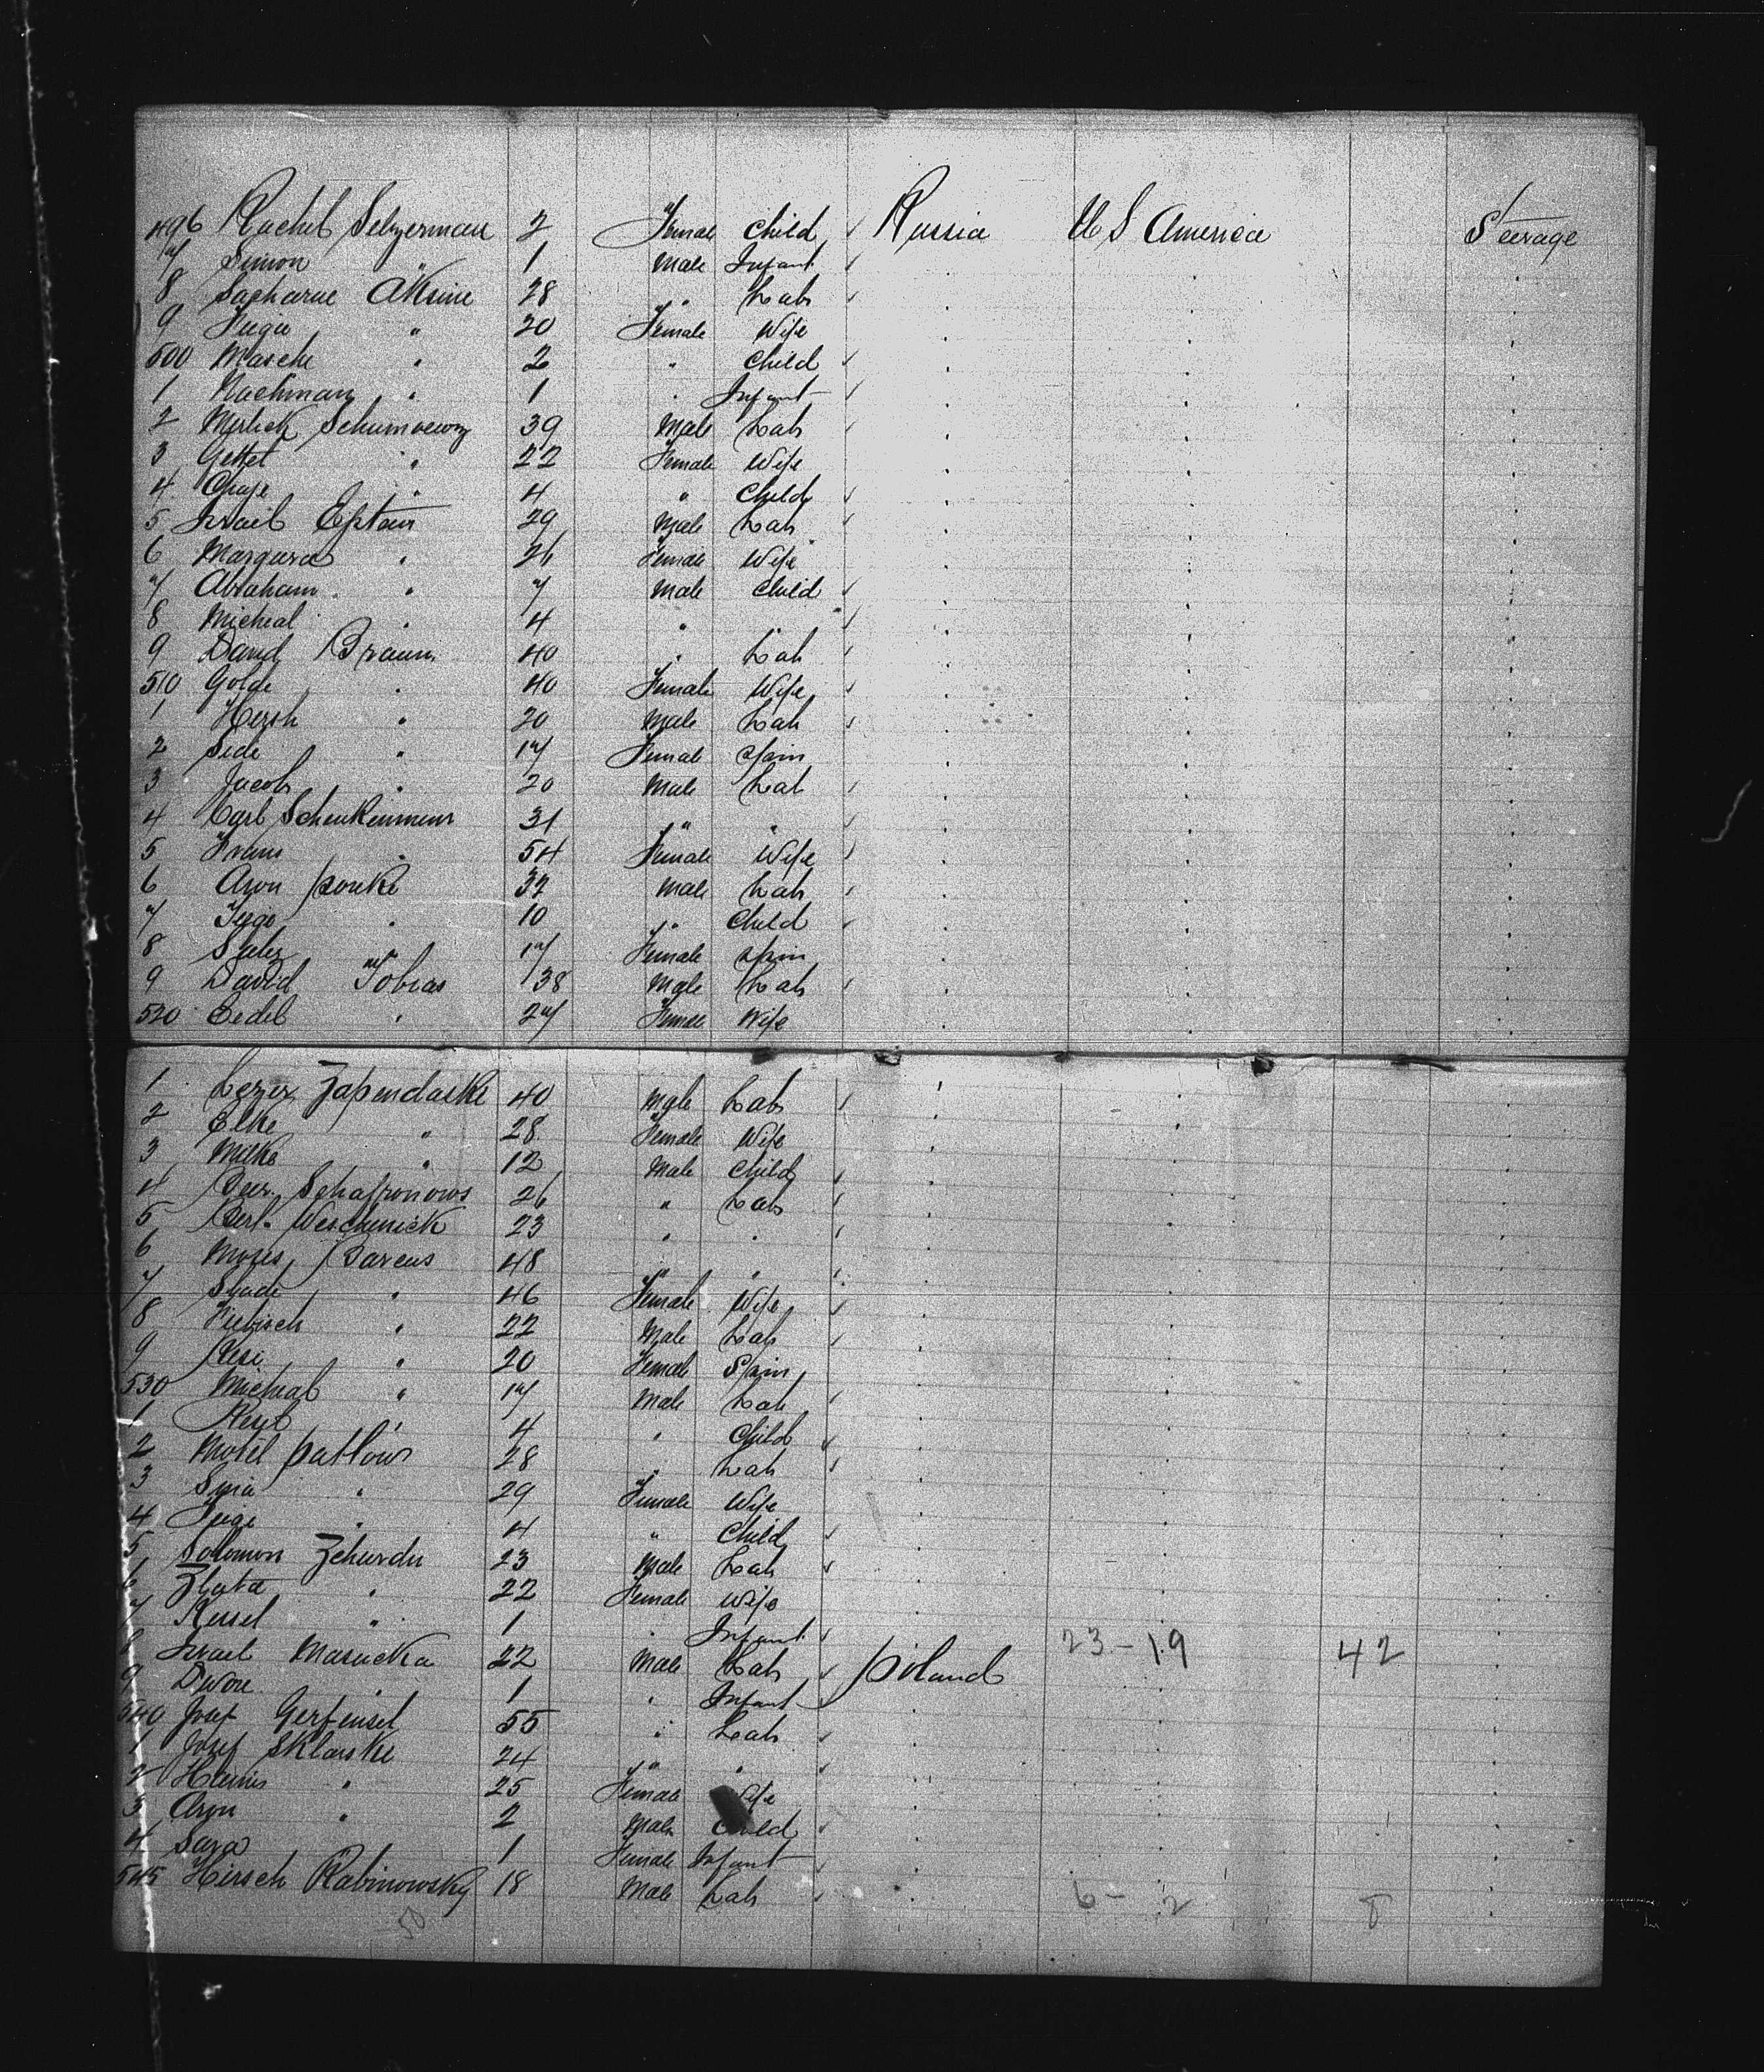 496 Rachel Selzerman 2 Female Child ✓ Russia U S America Steerage
7 Simon " 1 Male Infant ✓
8 Sacharne Aksine 28 " Lab ✓
9 Feiga " 20 Female Wife
500 Masche " 2 " Child ✓
1 Nachman " 1 " Infant ✓
2 39 Male Lab
3 Gettet " 22 Female Wife
4 Chaje " 4 " Child ✓
5 Israil Epstein 29 Male Lab ✓
6 " 26 Female Wife
7 Abraham " 7 Male Child ✓
8 Micheal " 4 " " ✓
9 David Braun 40 " Lab
510 Golde " 40 Female Wife
1 Hersh " 20 Male Lab ✓
2 Side " 17 Female Spin
3 Jacob " 20 Male Lab
4 Carl 31 " "
5 " 54 Female Wife
6 Aron 32 Male Lab
7 Feige " 10 " Child
8 17 Female Spin
9 David Tobias 38 Male Lab
520 Eedel " 27 Female Wife
1 Lezer Zapendaske 40 Male Lab ✓
2 Elke " 28 Female Wife
3 Milke " 12 Male Child
4 Schafronows 26 " Lab
5 Berl Weschenick 23 " "
6 Moses Bareus 48 " "
7 " 46 Female Wife
8 " 22 Male Lab
9 Resi " 20 Female Spin
530 Micheal " 17 Male Lab
1 4 " Child ✓
2 Motel Patlow 28 " Lab
3 " 29 Female Wife
4 Feige " 4 " Child
5 Solomon 23 Male Lab ✓
6 Zlata " 22 Female Wife
7 Kessel " 1 " Infant ✓
8 Israel Masucka 22 Male Lab ✓ Poland 23-19 42
9 Dwore " 1 " Infant ✓
540 Josef 55 " Lab ✓
1 Josef Sklarske 24 " " ✓
2 " 25 Female Wife
3 Aron " 2 Male Child ✓
4 Sara 1 Female Infant
545 Hirsch Rabinowsky 18 Male Lab ✓ 6-2 8
50